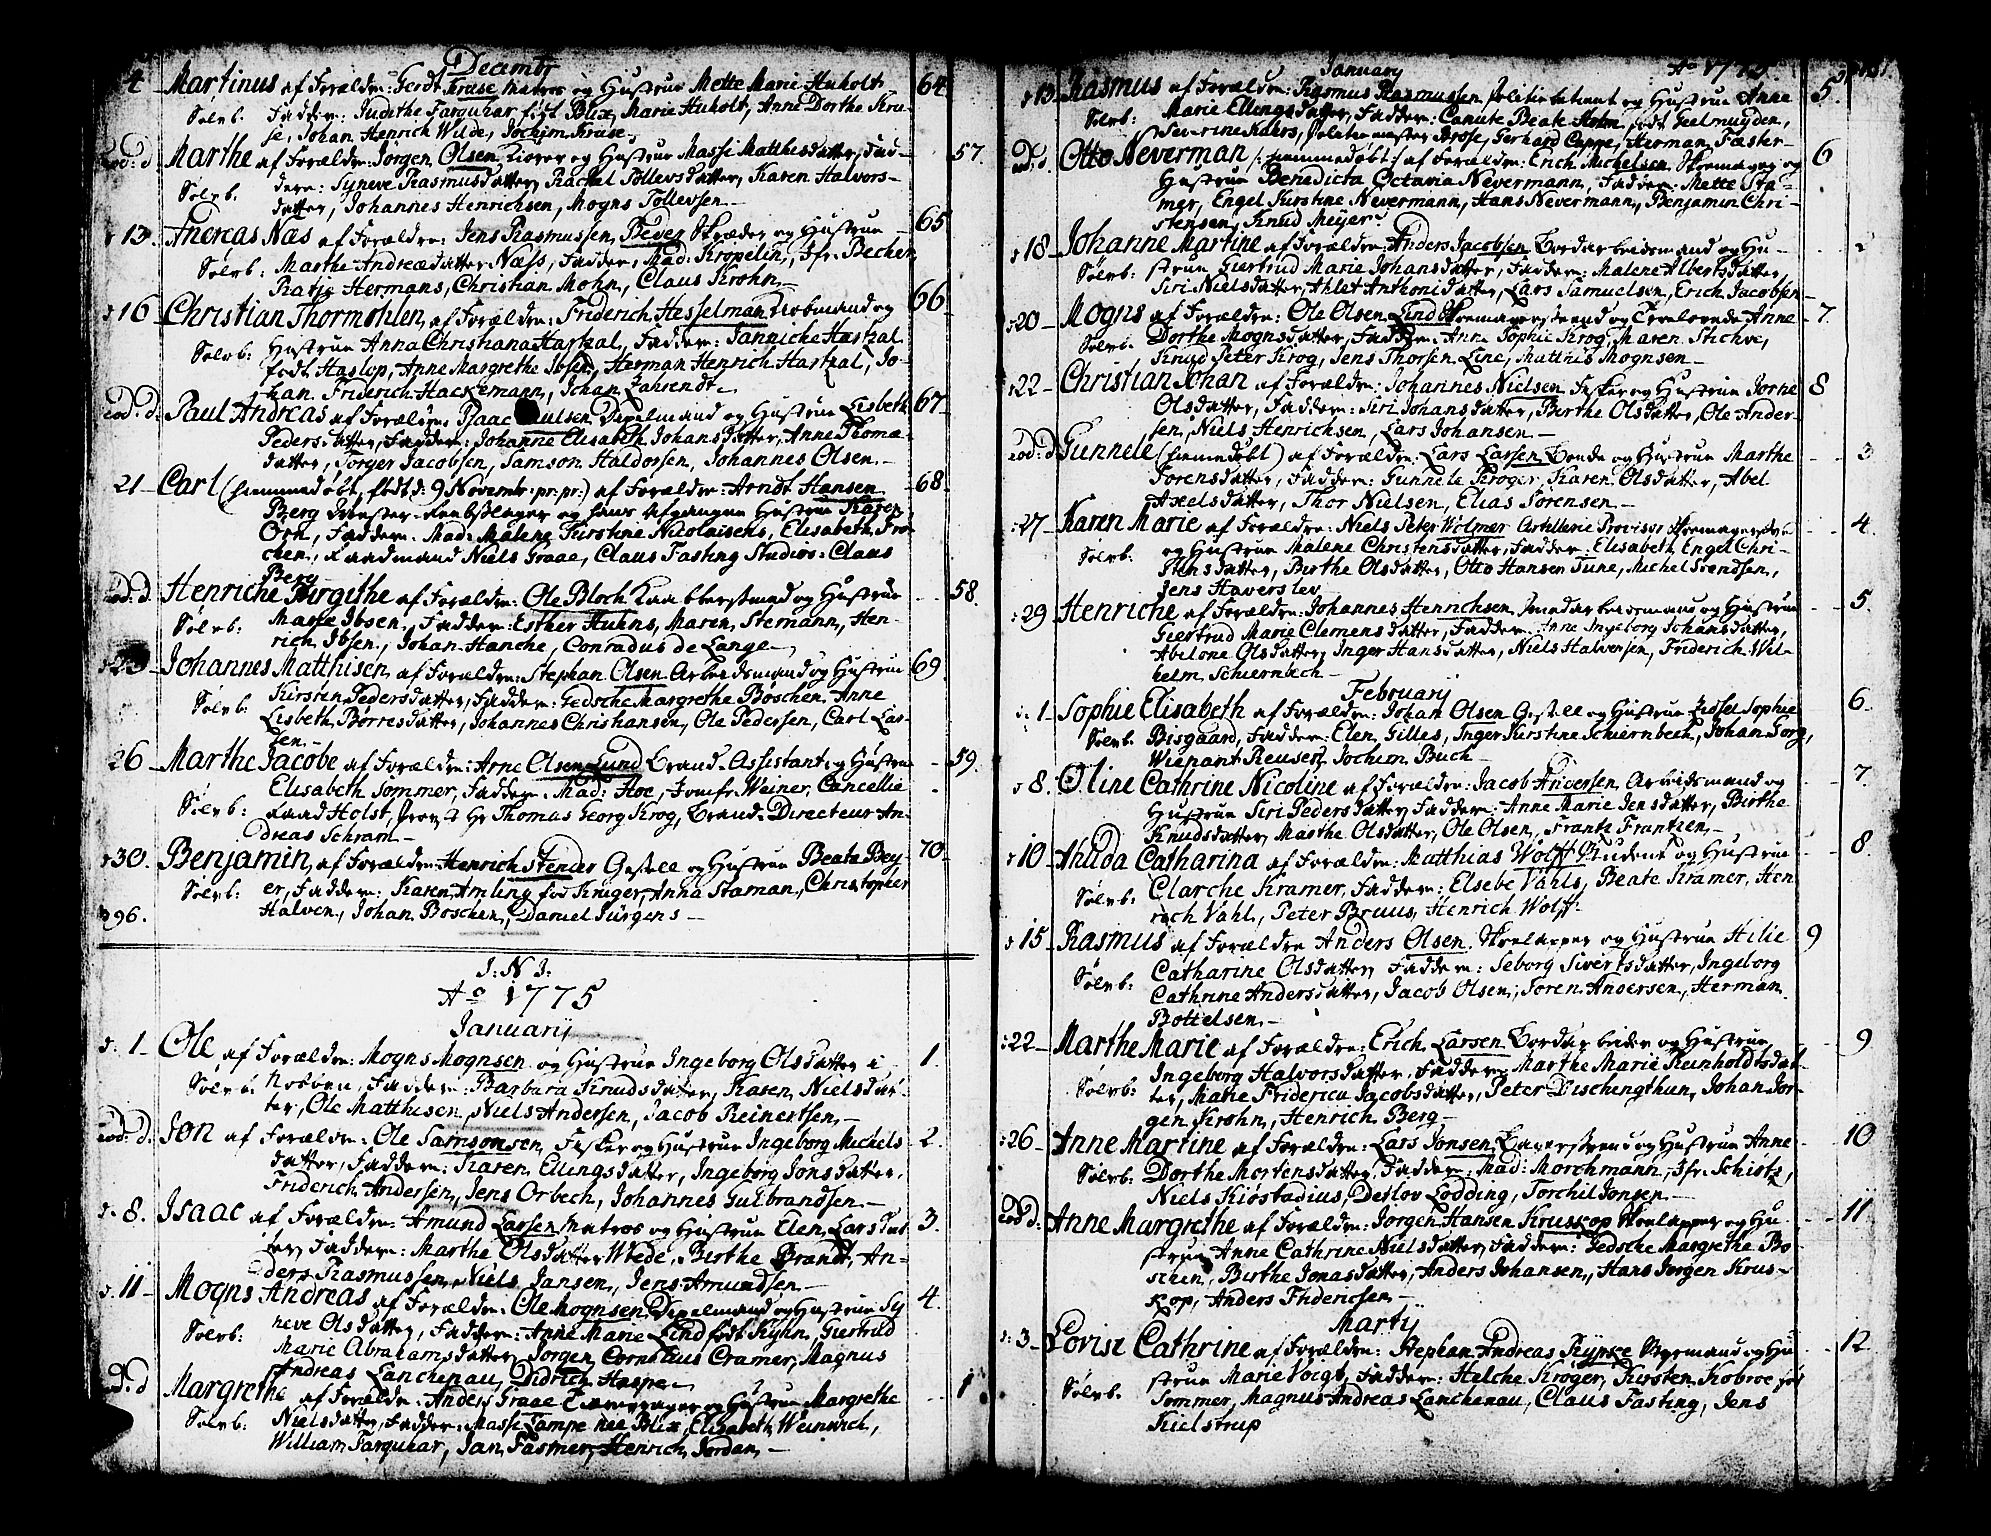 Decembr
4 Martinus af Forældre: Gerdt Kruse Matros og Hustrue Mette Marie Huholt 64
Sølvb. Faddere: Judithe Farquhar født Blix, Marie Huholt, Anne Dorthe Kru-
se, Johan Henrich Wilde, Jochim Kruse.
eod: d Marthe af Forældre: Jørgen Olsen og Hustrue Masse Matthisdatter, Fad- 57.
Sølvb. dere: Syneve Rasmusdatter, Rachel Tollevsdatter, Karen Halvors-
datter, Johannes Henrichsen, Mogns Tollevsen.
13. Andreas Næs af Forældre: Jens Rasmussen Beyer Skræder og Hustrue 65
Sølvb: Marthe Andreædatter Næss, Faddere: Mad: Kropelin, Jfr. Bechen,
Katje Hermans, Christian Mohn, Claus Krohn.
16 Christian Thormohlen, af Forældre: Friderich Hesselman Kiøbmand og 66
Sølvb: Hustrue Anna Christiana Hartzal, Faddere: Jannicke Hartzal
født Haslop, Anne Margrethe Ibsen, Herman Henrich Hartzal, Jo-
han Friderich Hackemann, Johan Zahrendt.
eod. d. Paul Andreas af Forældre: Isaac Paulsen Dragmand og Hustrue Lisbeth 67
Pedersdatter, Faddere: Johanne Elisabeth Johansdatter, Anne Thoma-
datter, Torger Jacobsen, Samson Haldorsen, Johannes Olsen.
21 Carl (hiemmedøbt, født d: 9 Novembr: pr: pr:) af Forældre: Arndt Hansen 68
Berg Mester Reebslager og hans afgangne Hustrue Karen
Orn, Faddere: Mad: Malene Kirstine Nicolaisens, Elisabeth Fro-
chen, Raadmand Niels Graae, Claus Fasting Studios: Claus
Berg
eod: d. Henriche Birgithe af Forældre: Ole Bloch Kaabberstmed og Hustrue 58.
Sølvb: Masse Ibsen, Faddere: Esther Huhns, Maren Stemann, Hen-
rich Ibsen, Johan Hanche, Conradus de Lange.
23 Johannes Matthisen af Forældre: Stephan Olsen Arbeidsmand og Hustrue 69
Sølvb: Kirsten Pedersdatter, Faddere: Gedsche Margrethe Boschen, Anne
Lisbeth Børresdatter, Johannes Christiansen, Ole Pedersen, Carl Lar-
sen.
26 Marthe Jacobe af Forældre: Arne Olsen Lund Brand-Assistant og Hustrue 59.
Elisabeth Sommer, Faddere: Mad: Hoe, Jomfr Weiner, Cancellie
Sølvb: Raad Holst, Hr Thomas Georg Krog, Brand-Directeur An-
dreas Schram
30. Benjamin, af Forældre: Henrich Stender Gesell og Hustrue Beata Bey- 70
Sølvb: er, Faddere: Karen Amling fød Kniger, Anna Staman, Christopher
396. Halven, Johan Boschen, Daniel Jürgens
J. N. J.
Ao 1775
Januarij
d: 1 Ole af Forældre: Mogns Mognsen og Hustrue Ingeborg Olsdatter i 1.
Sølvb. Faddere: Barbara Knudsdatter, Karen Nielsdat-
ter, Ole Matthisen, Niels Andersen, Jacob Reinertsen,
eod: d. Jon af Forældre: Ole Samsonsen, Fesker og Hustrue Ingeborg Michels- 2.
datter, Faddere: Karen Ellingsdatter, Ingeborg Jonsdatter,
Friderich Andersen, Jens Orbech, Johannes Gulbrandsen.
d. 8. Isaac af Forældre: Amund Larsen Matros og Hustrue Elen Larsdat- 3.
ter, Faddere: Marthe Olsdatter Wede, Birthe Brandt, An-
ders Rasmussen, Niels Jansen, Jens Amundsen
d. 11 Mogns Andreas af Forældre: Ole Mognsen Dragmand og Hustrue Sy- 4.
Sølvb: neve Olsdatter, Faddere: Anne Marie Lind født Kyhn, Giertrud
Marie Abrahamsdatter, Jørgen Cornelius Cramer, Magnus
Andreas Lanchenau, Didrich Haspe
eod: d Margrethe af Forældre: Anders Graae og Hustrue Margrethe 1
Sølvb: Nielsdatter, Faddere: Masse Lampe nee Blix, Elisabeth Weinwich,
William Farquhar, Jan Fasmer, Henrich Jordan,
January Ao 1775.
13. Rasmus af Forældre: Rasmus Rasmussen Politie betient og Hustrue Anne 5
Sølvb: Marie Ellingsdatter, Faddere: Canute Beate Holm født Geelmuyden,
Severine Kahrs, Politiemester Brose, Gerhard Cappe, Herman Faster
eod. d. Otto Neverman /: hiemmedøbt :/ af Forældre: Erich Michelsen Skomager og 6
Hustrue Benedicta Octavia Nevermann, Faddere: Mette Sta-
mer, Engel Kirstine Nevermann, Hans Nevermann, Benjamin Chri-
stensen, Knud Meyer
18 Johanne Martine af Forældre: Anders Jacobsen Bordarbeidsmand og Hu- 2
Sølvb: strue Giertrud Marie Johansdatter, Faddere: Malene Albertsdatter,
Siri Nielsdatter, Ahlet Anthonisdatter, Lars Samuelsen, Erich Jacobsen
20 Mogns af Forældre: Ole Olsen Lind Skomagersvend og Trolovede Anne 7.
Sølvb. Dorthe Mognsdatter, Faddere: Anne Sophie Krog, Maren Stichve,
Knud Peter Krog, Jens Thorsen Line, Matthis Mognsen
22 Christian Johan af Forældre: Johannes Nielsen Fesker og Hustrue Jorne 8
Olsdatter, Faddere: Siri Johansdatter, Birthe Olsdatter, Ole Ander-
sen, Niels Henrichsen, Lars Johansen.
eod: d Gunnele (hiemmedøbt) af Forældre: Lars Larsen Bonde og Hustrue Marthe 3
Sorensdatter, Faddere: Gunnele Kroger, Karen Olsdatter, Abel
Axelsdatter, Thor Nielsen, Elias Sorensen
27 Karen Marie af Forældre: Niels Peter Wolmer Artillerie Provisor Skomager 4.
Sølvb: og Hustrue Malene Christensdatter, Faddere: Elisabeth Engel Chri-
stensdatter, Birthe Olsdatter, Otto Hansen Tune, Michel Svendsen,
Jens Haverslev
29 Henriche af Forældre: Johannes Henrichsen Smedarbeidsmand og Hustrue 5.
Geertrud Marie Clemensdatter, Faddere: Anne Ingeborg Johansdatter,
Abelone Olsdatter, Inger Hansdatter, Niels Halvorsen, Friderich Wil-
helm Schiernbech
February
1 Sophie Elisabeth af Forældre: Johan Olsen Gesell og Hustrue Zidsel Sophie 6.
Sølvb. Bisgaard, Faddere: Elen Gilles, Inger Kirstine Schiernbech, Johan Jorg,
Wiepant Reusen, Jochum Buch
8. Oline Cathrine Nicoline af Forældre: Jacob Andersen Arbeidsmand og 7.
Hustrue Siri Pedersdatter, Faddere: Anne Marie Jensdatter, Birthe
Knudsdatter, Marthe Olsdatter, Ole Olsen, Frantz Frantzen,
10 Ahlida Catharina af Forældre: Matthias Wolff Student og Hustrue 8.
Sølvb: Clarche Kramer, Faddere: Elsebe Vahls, Beate Kramer, Hen-
rich Vahl, Peter Bruus, Henrich Wolff
15 Rasmus af Forældre Anders Olsen Skoelapper og Hustrue Hilie 9
Sølvb: Catharine Olsdatter, Faddere: Seborg Sivertsdatter, Ingeborg
Cathrine Andersdatter, Jacob Olsen, Soren Andersen, Herman
Bottelsen.
22 Marthe Marie af Forældre: Erich Larsen Bordarbeider og Hustrue 9
Sølvb: Ingeborg Halvorsdatter, Faddere: Marthe Marie Reinholdtsdat-
ter, Marie Friderica Jacobsdatter, Peter Dischingthun, Johan Jor-
gen Krohn, Henrich Berg
26 Anne Martine af Forældre: Lars Jonsen Bagersvend og Hustrue Anne 10
Sølvb: Dorthe Mortensdatter, Faddere: Mad: Morchmann, Jfr. Schiøtz,
Niels Kiøstadius, Detlov Lodding, Torchil Jonsen.
eod. d. Anne Margrethe af Forældre: Jørgen Hansen Kruskop Skoelapper og Hu- 11
strue Anne Cathrine Nielsdatter, Faddere: Gedsche Margrethe Bo-
schen, Birthe Jonasdatter, Anders Johansen, Hans Jorgen Krus-
kop, Anders Friderichsen
Martij
d: 3 Lovise Cathrine af Forældre: Stephan Andreas Rynke Byemand og Hu- 12
Sølvb. strue Marie Voigt, Faddere: Helche Kroger, Kirsten Kobroe født
Sommer, Magnus Andreas Lanchenau, Claus Fasting, Jens
Kielstrup